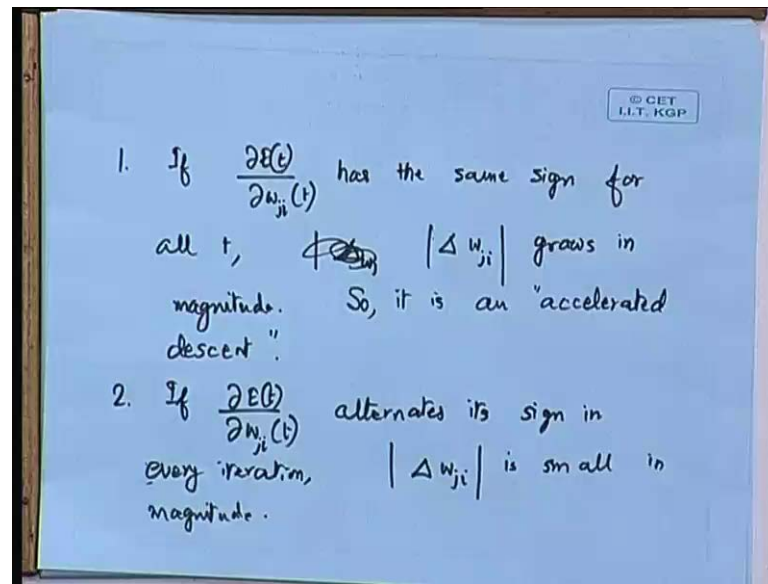 © CET
I.I.T. KGP
1. If ∂E(t)/∂w_ji(t) has the same sign for
all t, |Δ w_ji| grows in
magnitude. So, it is an "accelerated
descent".
2. If ∂E(t)/∂w_ji(t) alternates its sign in
every iteration, |Δ w_ji| is small in
magnitude.